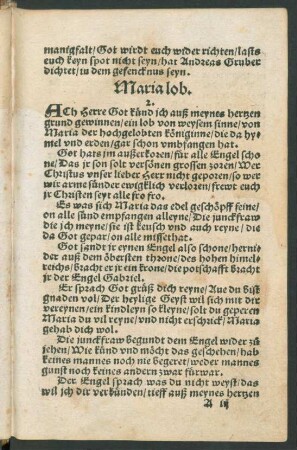 manigfalt/Got wirdt euch wider richten/lasts
euch keyn spot nicht seyn/hat Andreas Gruber
dichtet/in dem gefencknus seyn.
Maria lob.
2.
ACh Herre Got künd ich auß meynes hertzen
grund gewinnen/ein lob von weysem sinne/von
Maria der hochgelobten königinne/die da hy-
mel vnd erden/gar schon vmbfangen hat.
Got hats im außerkoren/für alle Engel scho-
ne/Das jr son solt versönen grossen zoren/Wer
Christus vnser lieber Herr nicht geporen/so wer
wir arme sünder ewigklich verloren/frewt euch
jr Christen seyt alle fro fro.
Es was sich Maria das edel geschöpff feine/
on alle sünd empfangen alleyne/Die junckfraw
die ich meyne/sie ist keusch vnd auch reyne/die
da Got gepar/on alle missethat.
Got sandt jr eynen Engel also schone/herni-
der auß dem öbersten throne/des hohen himel-
reichs/bracht er jr ein krone/die potschafft bracht
jr der Engel Gabriel.
Er sprach Got grüß dich reyne/Aue du bist
gnaden vol/Der heylige Geyst wil sich mit dir
vereynen/ein kindleyn so kleyne/solt du geperen
Maria du vil reyne/vnd nicht erschrick/Maria
gehab dich wol.
Die junckfraw begundt dem Engel wider zů
jehen/Wie künd vnd möcht das geschehen/hab
keines mannes noch nie begeret/weder mannes
gunst noch keines andern zwar fürwar.
Der Engel sprach was du nicht weyst/das
wil ich dir verkünden/tieff auß meynes hertzen
A iij